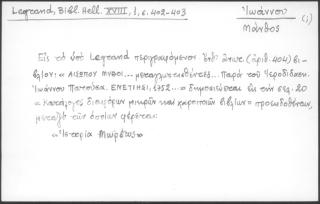 Legrand, Bibl. Hell. XVIII, 1, σ. 402-403
Ἰωάννου
Μάνθος
(1)
Εἰς τὸ ὑπὸ Legrand περιγραφόμενον (ἀριθ. 404) βι-
βλίον: « ΑΙΣΩΠΟΥ ΜΥΘΟΙ... μεταγλωττισθέντες... Παρὰ τοῦ Ἱεροδιδασκ.
Ἰωάννου Πατούσα. ΕΝΕΤΙΗΣΙ, 1752...» δημοσιεύεται εἰς τὴν σελ. 20
« Κατάλογος διαφόρων μικρῶν καὶ χαροπιῶν βιβλίων »
μεταξὺ τῶν ὁποίων φέρεται:
« Ἱστορία Μωρέως »